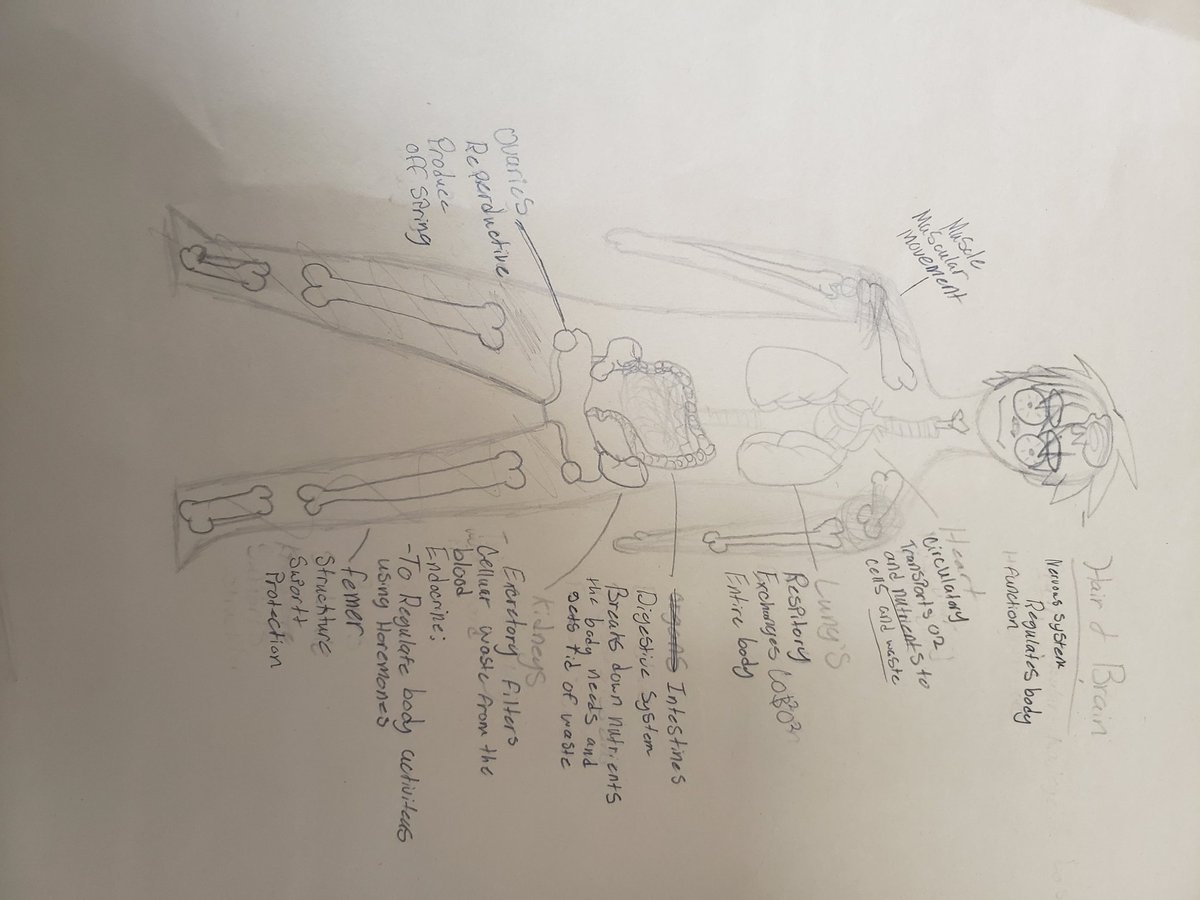 Hair & Brain
Nervous system
Regulates body
Function
Muscle
Muscular
movement
Heart
Circulatory
Transports O2
and nutrients to
cells and waste
Lung's
Respitory
Exchanges
Entire body
Intestines
Digestive System
Breaks down nutrients
the body needs and
gets rid of waste
Kidneys
- Excretory filters
Celluar waste from the
blood
Endocrine:
- To Regulate body activiteas
using Horemones
femer
Structure
Suport
Protection
Ovaries
Reperductive
Produce
off string